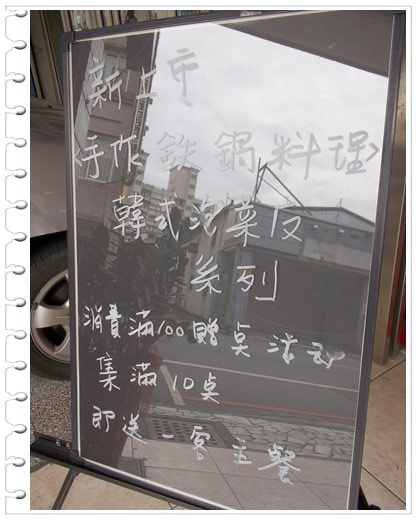 新上市
<手作鉄鍋料理>
韓式泡菜反
系列
消費滿100贈点活动
集滿10点
即送一客主餐